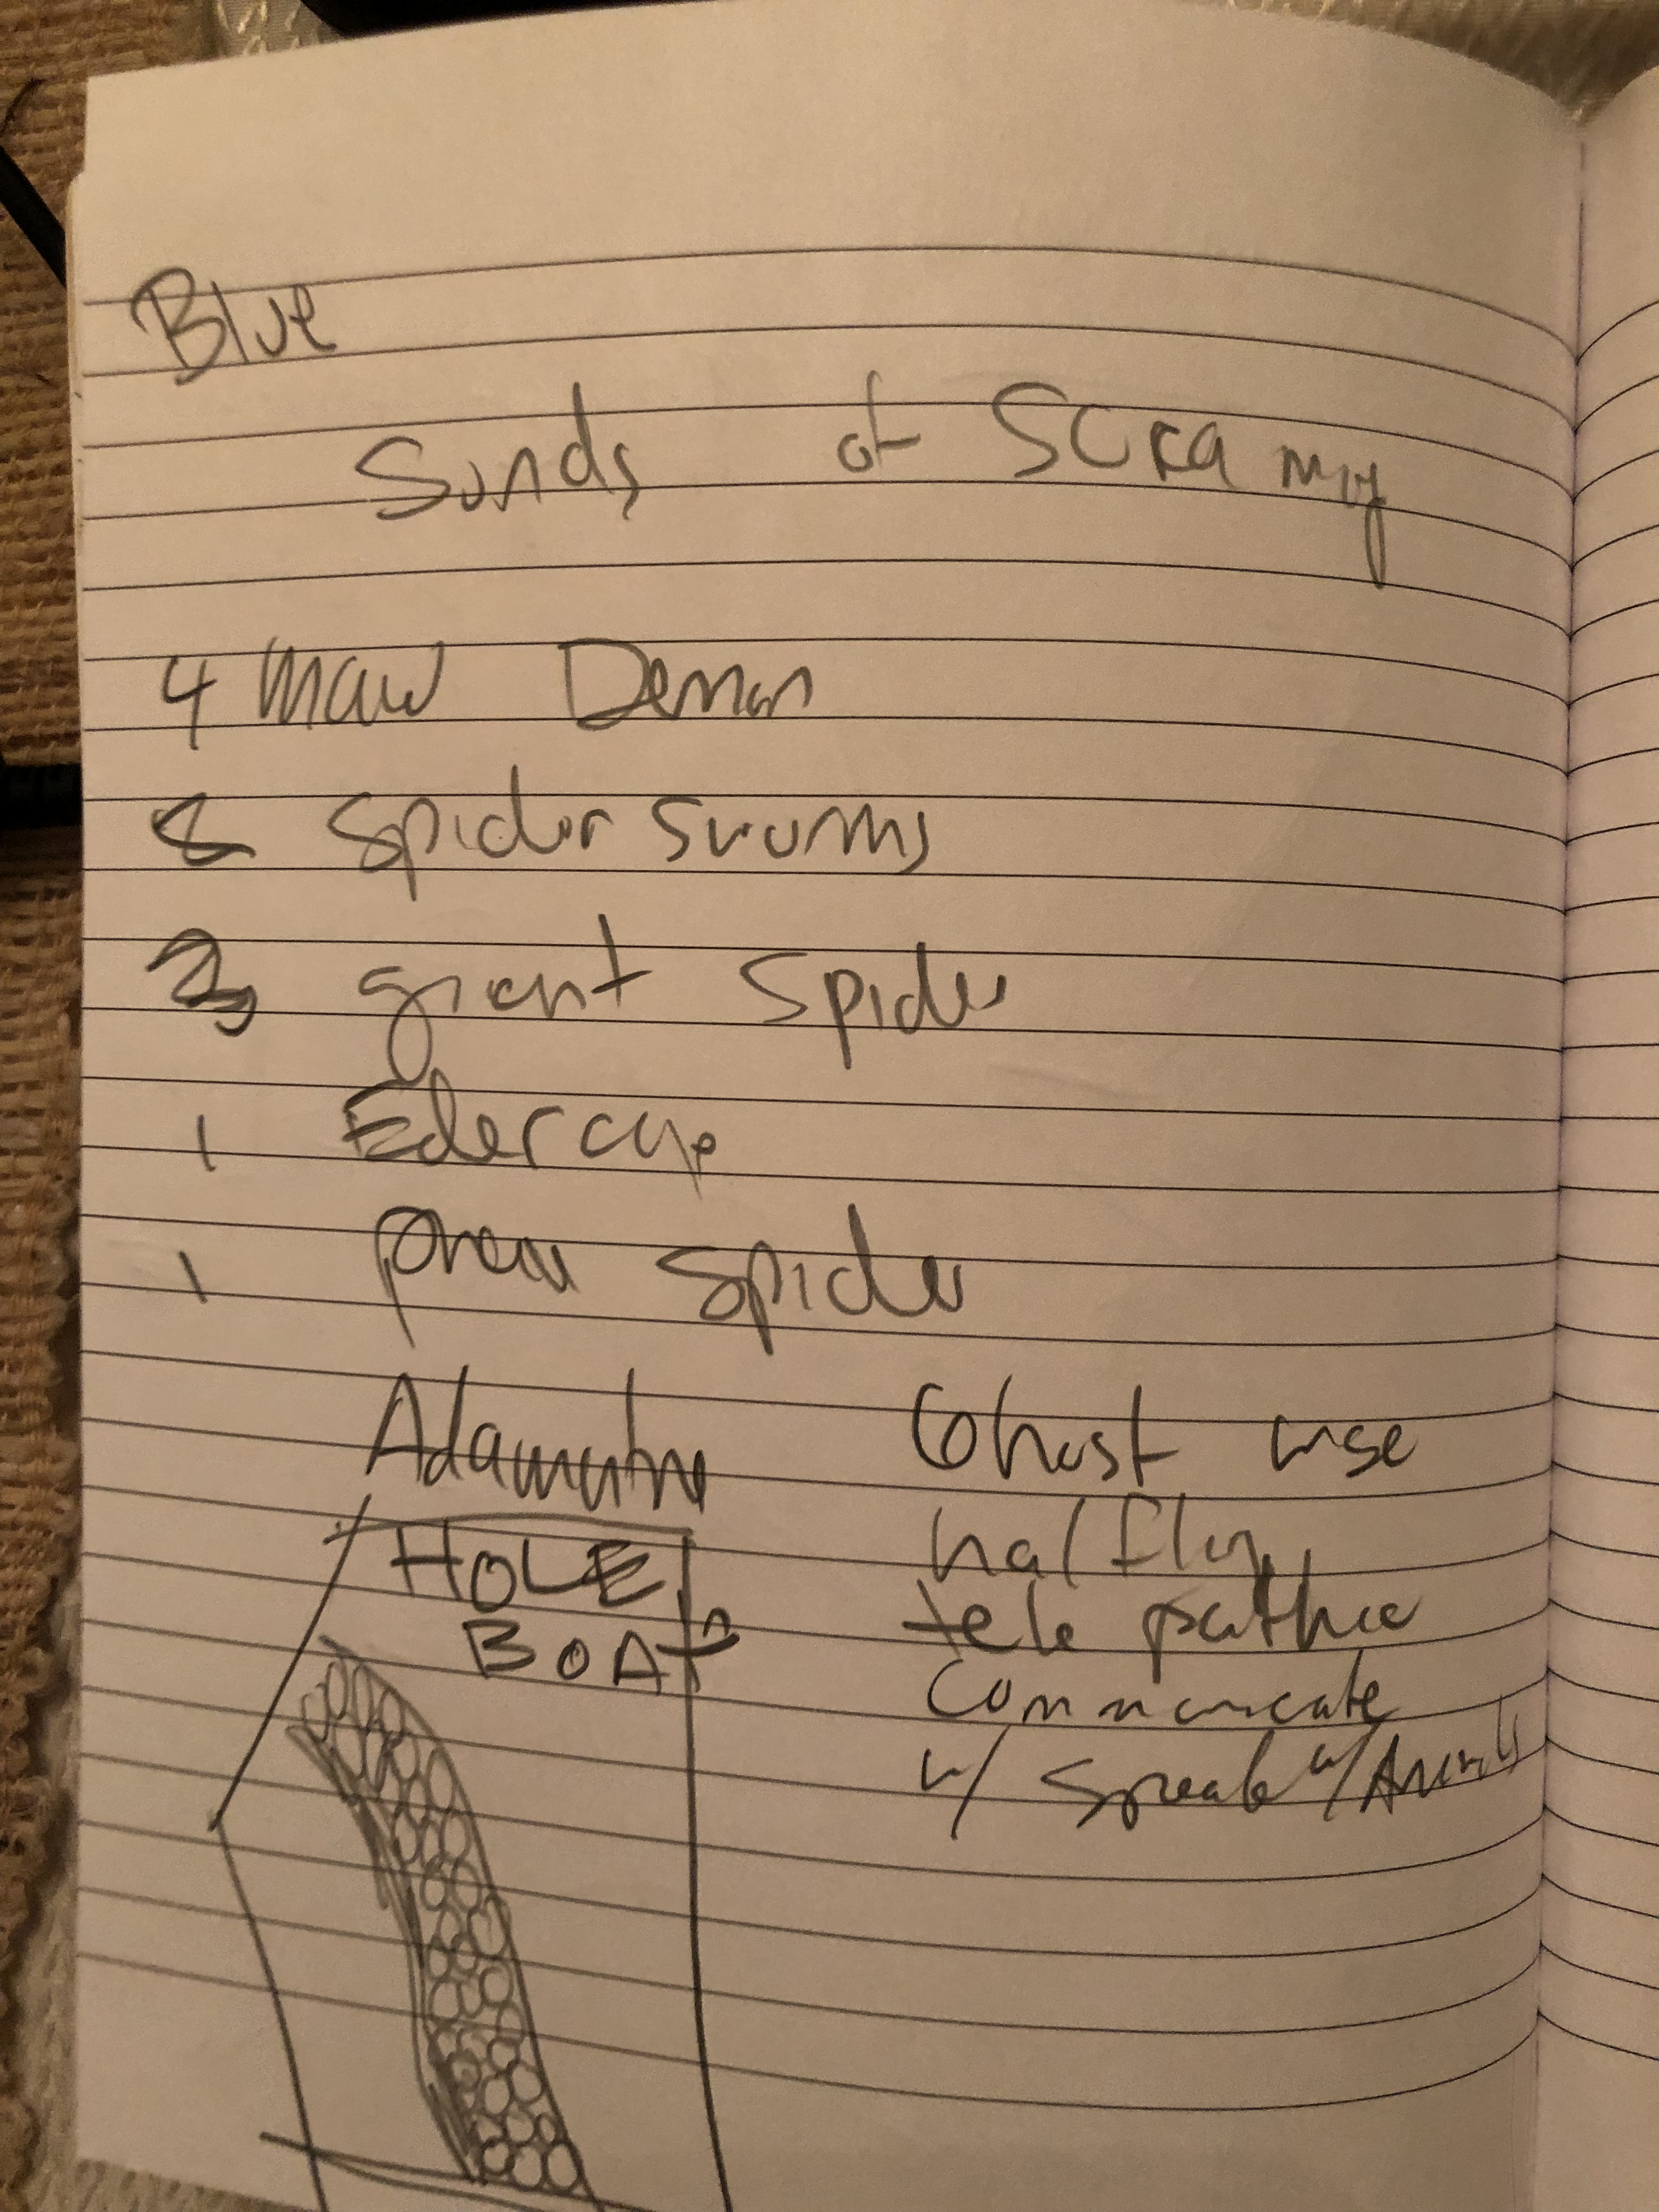 Blue
Sunds of Scramy
4 Maw Demon
Spider Swarms
giant Spider
1 Edercup
1 Spider
Adamantine
HOLE
BOAT
Ghost wise
halfling
tele pathic
Communicate
w/ Speak w/ Animals